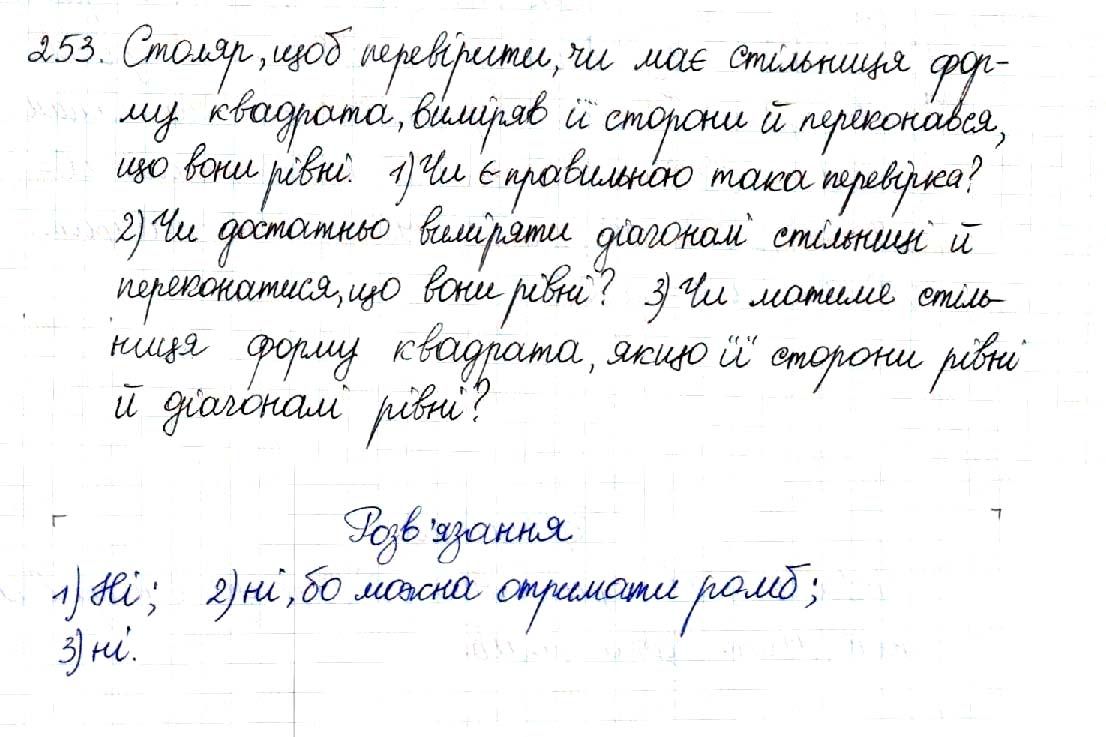 253. Столяр, щоб перевірити, чи має стільниця фор-
му квадрата, виміряв її сторони й переконався,
що вони рівні. 1) Чи є правильною така перевірка?
2) Чи достатньо виміряти діагоналі стільниці й
переконатися, що вони рівні? 3) Чи матиме стіль-
ниця форму квадрата, якщо її сторони рівні
й діагоналі рівні?
Розв'язання
1) Ні; 2) ні, бо можна отримати ромб;
3) ні.